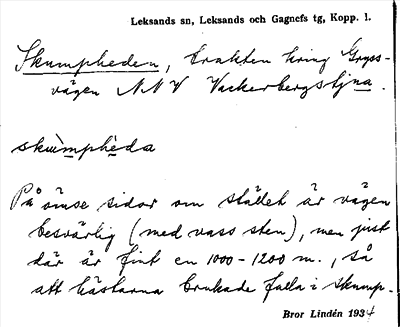 Leksands sn, Leksands och Gagnefs tg, Kopp. l.
Skumpheden, trakten kring Gryss-
vägen NNV Vackerbergstjna.
skumphèda
På ömse sidor om stället är vägen
besvärlig (med vass sten), men just
där är fint en 1000-1200 m., så
att hästarna brukade falla i skump.
Bror Lindén 1934